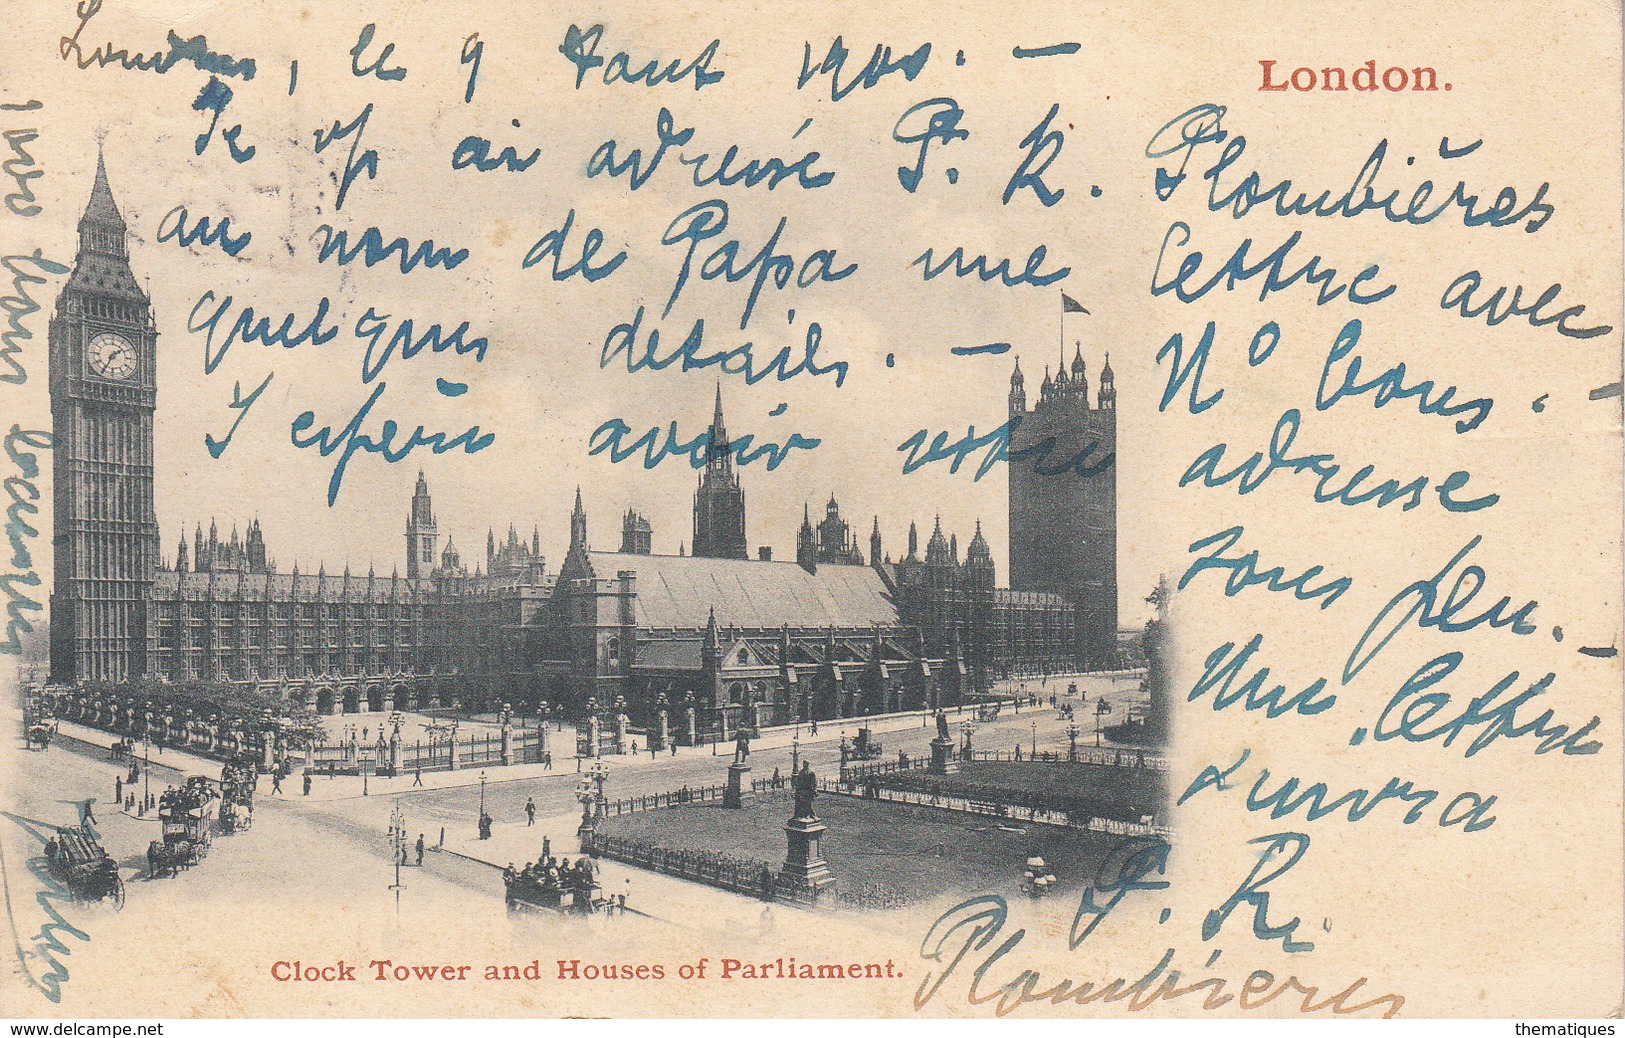 London.
Londres, le 9 Aout 1900. —
Je ai adressé P. R. Plombières
au nom de Papa une lettre avec
quelques details. — N° vous. —
J espère avoir votre adresse
sous peu. —
Une lettre
P. R.
Plombières
Clock Tower and Houses of Parliament.
delcampe.net
thematiques